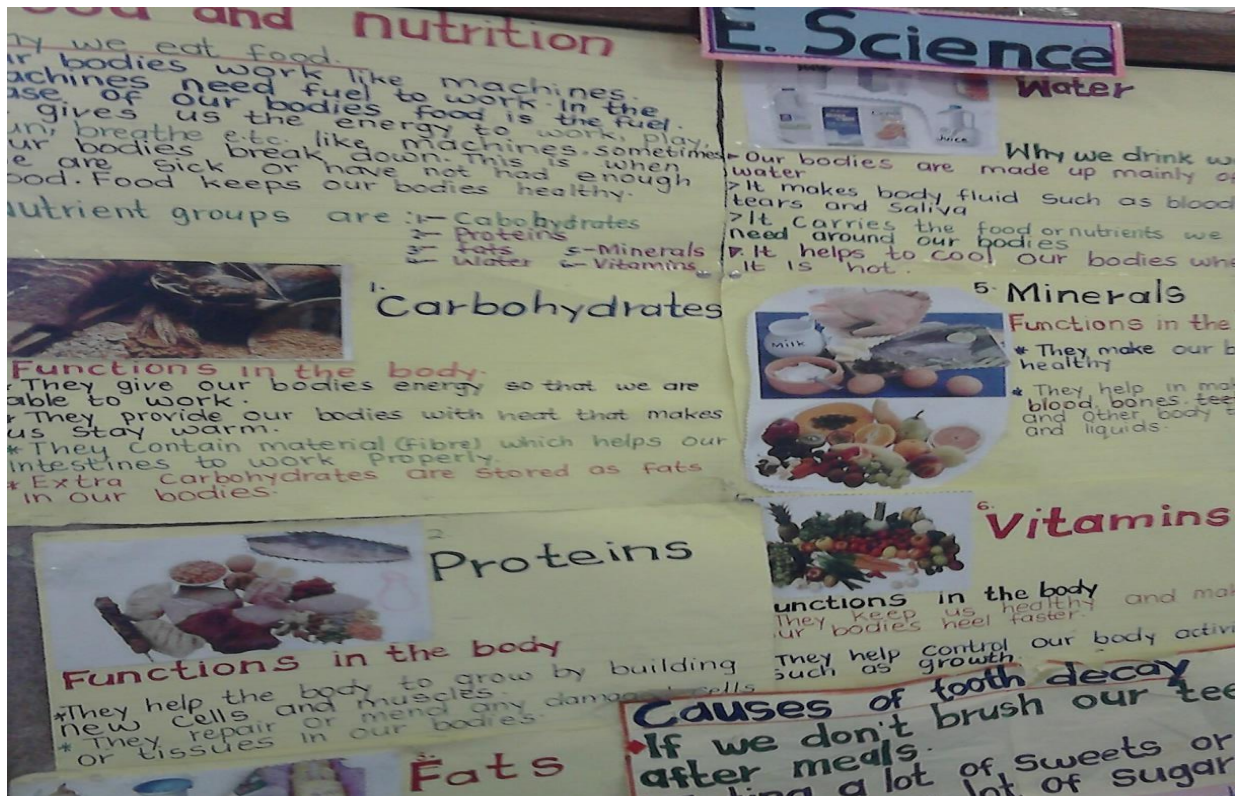 and nutrition
we eat food.
bodies work like machines.
machines need fuel to work. In the
of our bodies food is the fuel.
gives us the energy to work, play,
breathe e.t.c. like machines. sometimes
bodies break down. This is when
are sick or have not had enough
Food keeps our bodies healthy.
nutrient groups are :1- Cabohydrates
2- Proteins
3- Fats 5- Minerals
4- Water 6- Vitamins
1. Carbohydrates
Functions in the body.
* They give our bodies energy so that we are
able to work.
* They provide our bodies with heat that makes
us stay warm.
* They contain material (fibre) which helps our
intestines to work properly.
* Extra Carbohydrates are stored as fats
in our bodies.
2. Proteins
Functions in the body
*They help the body to grow by building
new cells and muscles.
* They repair or mend any damaged cells
or tissues in our bodies.
Fats
E. Science
Water
Juice
Why we drink
Our bodies are made up mainly
water
>It makes body fluid such as blood
tears and saliva
>It carries the food or nutrients we
need around our bodies
It helps to cool our bodies
It is hot.
5. Minerals
Milk
Functions in the
* They make our
healthy
* They help in
blood, bones,
and other body
and liquids.
6. Vitamins
unctions in the body
They keep us healthy and
ur bodies heel faster.
They help control our body
such as growth.
Causes of tooth decay
If we don't brush our
after meals.
a lot of sweets or
lot of sugar